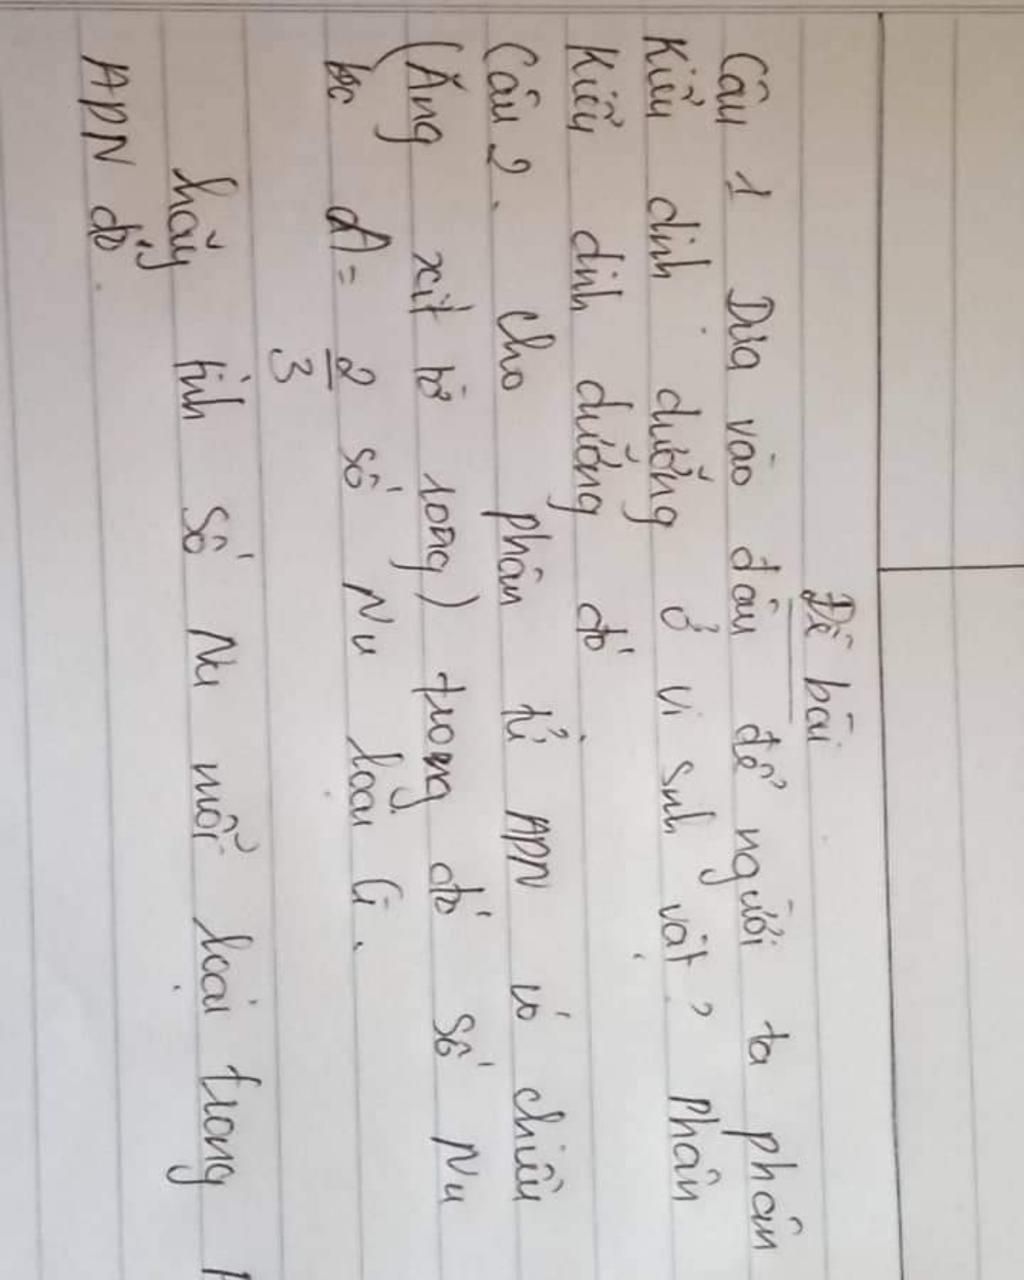 Đề bài
Câu 1 Dựa vào đâu để người ta phân
Kiểu dinh dưỡng ở vi sinh vật? Phân
Kiểu dinh dưỡng đó
Câu 2. Cho phân tử ADN có chiều
(Ăng xit tơ rong) trong đó số Nu
A = 2/3 số Nu loại G.
hãy tính số Nu mỗi loại trong
ADN đó.